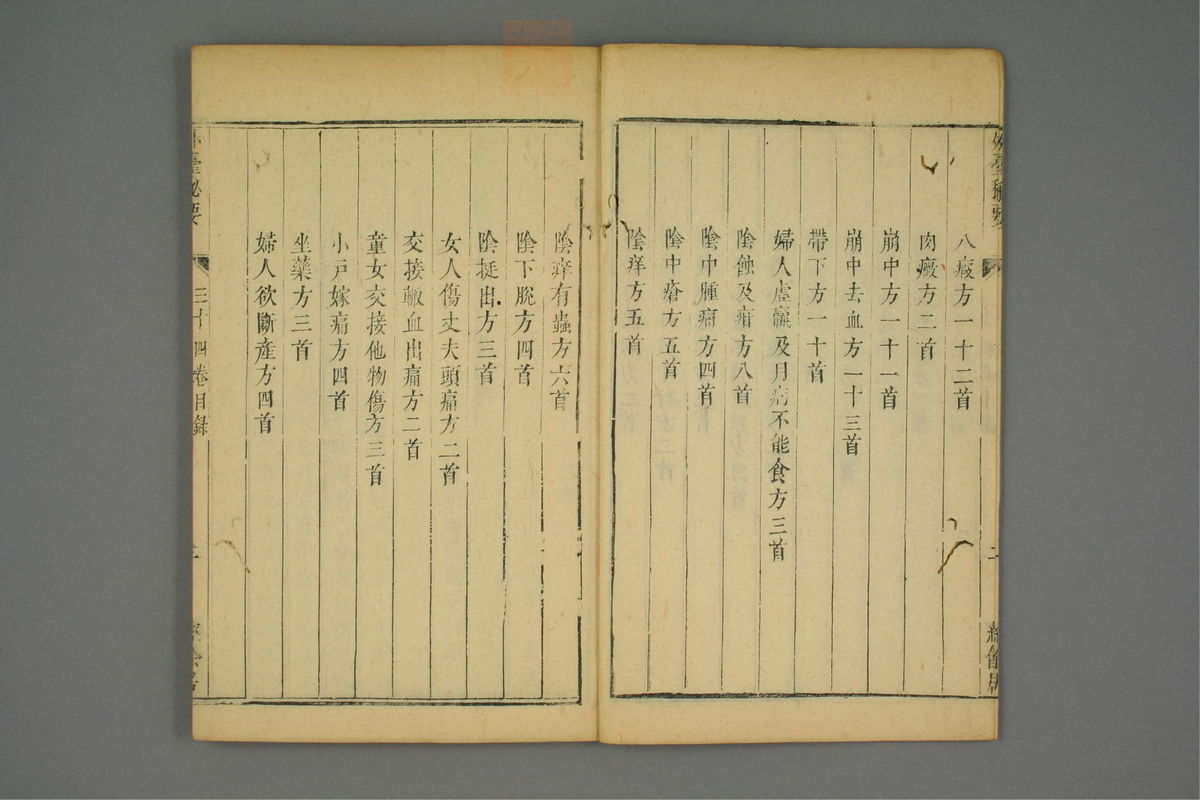 外臺秘要
二
經餘居
八瘕方一十二首
肉癥方二首
崩中方一十一首
崩中去血方一十三首
帶下方一十首
婦人虛羸及月病不能食方三首
陰蝕及疳方八首
陰中腫痛方四首
陰中瘡方五首
陰痒方五首
陰痒有蟲方六首
陰下脫方四首
陰挺出方三首
女人傷丈夫頭痛方二首
交接輙血出痛方二首
童女交接他物傷方三首
小戸嫁痛方四首
坐藥方三首
婦人欲斷產方四首
外臺秘要
三十四卷目録